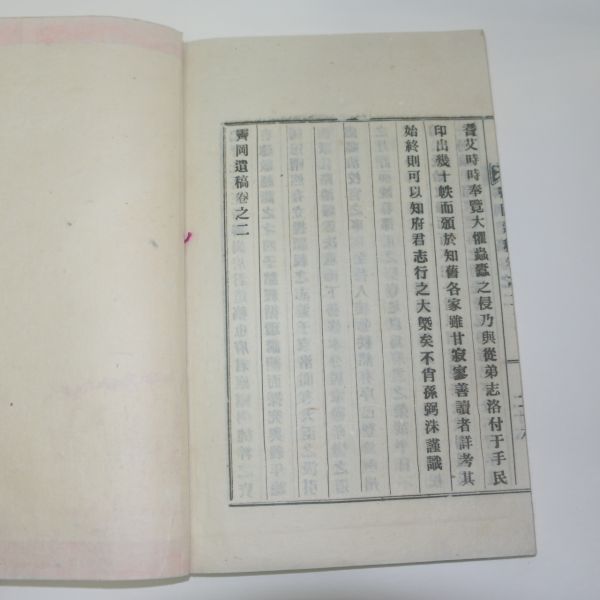 耆艾時時奉覽大懼蟲蠹之侵乃與從弟志洛付于手民
印出幾十帙而頒於知舊各家雖甘寂寥善讀者詳考其
始終則可以知府君志行之大槩矣不肖孫弼洙謹識
齊岡遺稿卷之二